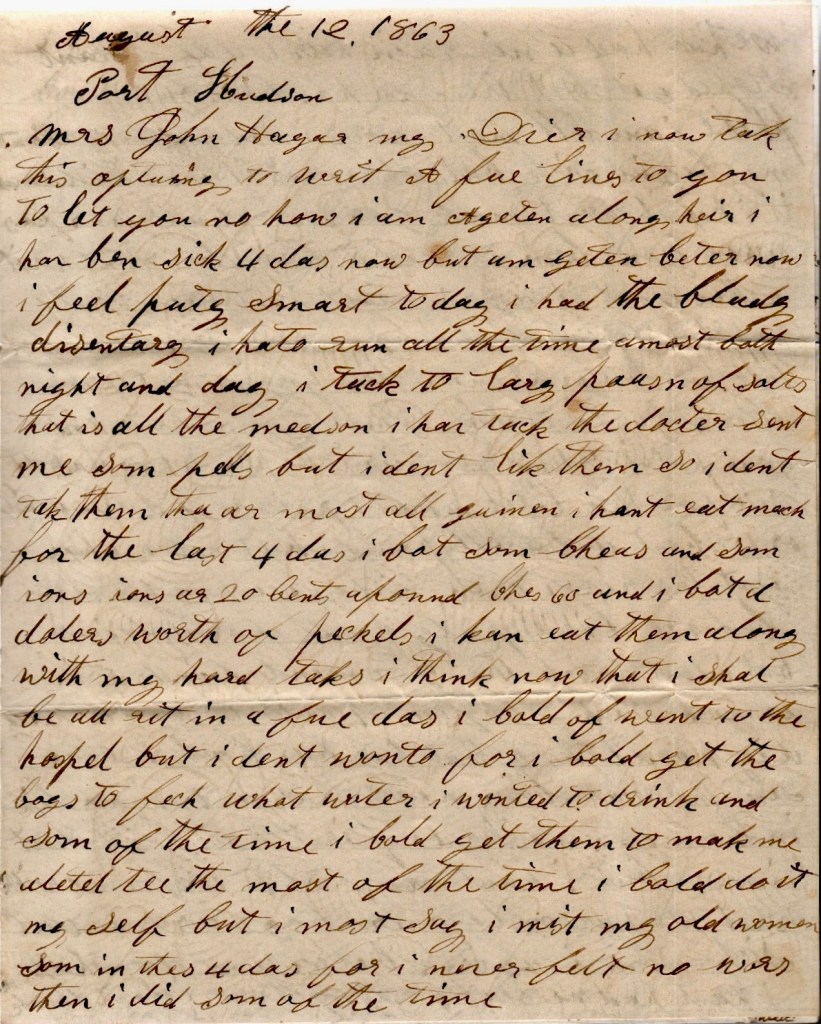 August the 12, 1863
Port Hudson
Mrs John Hagar my Dier i now tak
this optuning to writ A fue lines to you
to let you no how i am Ageten along heir i
hav ben sick 4 das now but am geten beter now
i feel puty smart to day i had the bludy
disentary i hato run all the time amost both
night and day i tuck to larg of salts
that is all the medson i hav tuck the docter sent
me som pells but i dent lik them so i dent
tak them tha ar most all i hant eat mech
for the last 4 das i bot som Cheas and som
ions ions ar 20 Cents apound Ches 60 and i bot a
dolers worth of peckels i kan eat them along
with my hard taks i think now that i shal
be all rit in a fue das i Cold of went to the
hospel but i dent wonto for i Cold get the
boys to fech what water i wonted to drink and
som of the time i Cold get them to mak me
aletel tee the most of the time i Cold do it
my self but i most say i mist my old women
som in thes 4 das for i never felt no wors
then i did som of the time